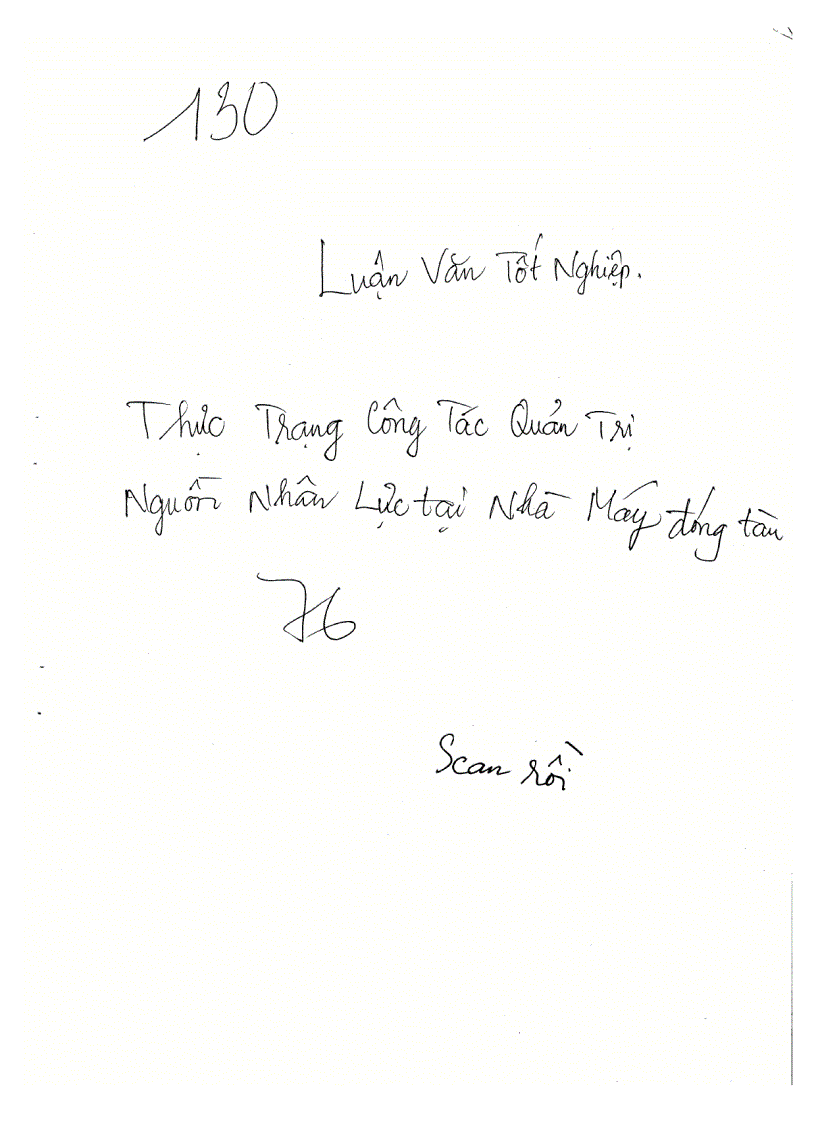 130
Luận Văn Tốt Nghiệp.
Thực Trạng Công Tác Quản Trị
Nguồn Nhân Lực tại Nhà Máy đóng tàu
76
Scan rồi